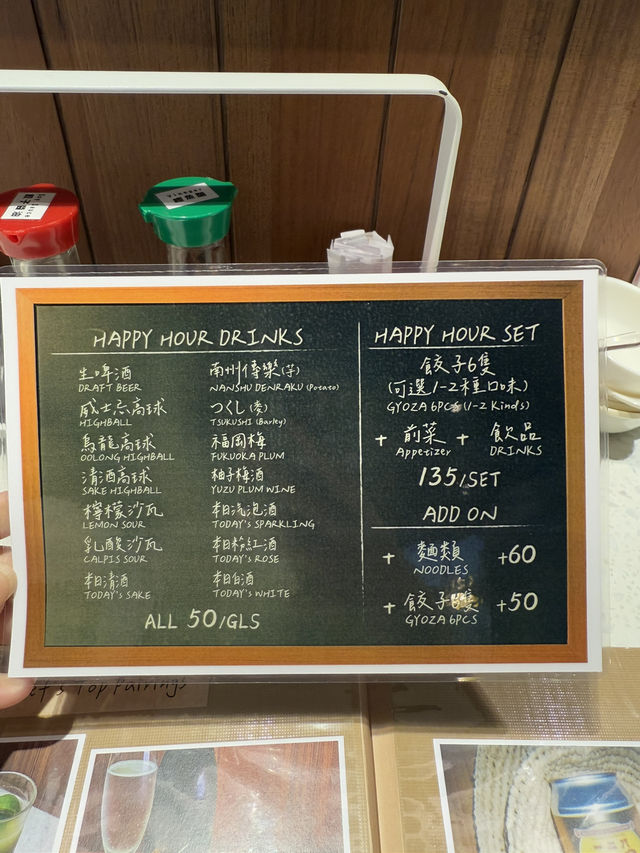 HAPPY HOUR DRINKS
生啤酒
DRAFT BEER
威士忌高球
HIGHBALL
烏龍高球
OOLONG HIGHBALL
清酒高球
SAKE HIGHBALL
檸檬沙瓦
LEMON SOUR
乳酸沙瓦
CALPIS SOUR
本日清酒
TODAY'S SAKE
南州傳樂(芋)
NANSHU DENRAKU (Potato)
つくし(麦)
TSUKUSHI (Barley)
福岡梅
FUKUOKA PLUM
柚子梅酒
YUZU PLUM WINE
本日汽泡酒
TODAY'S SPARKLING
本日粉紅酒
TODAY'S ROSE
本日白酒
TODAY'S WHITE
ALL 50/GLS
HAPPY HOUR SET
餃子6隻
(可選1-2種口味)
GYOZA 6PCS (1-2 Kinds)
+ 前菜 + 飲品
Appetizer DRINKS
135/SET
ADD ON
+ 麵類 +60
NOODLES
+ 餃子6隻 +50
GYOZA 6PCS
Top Pairings